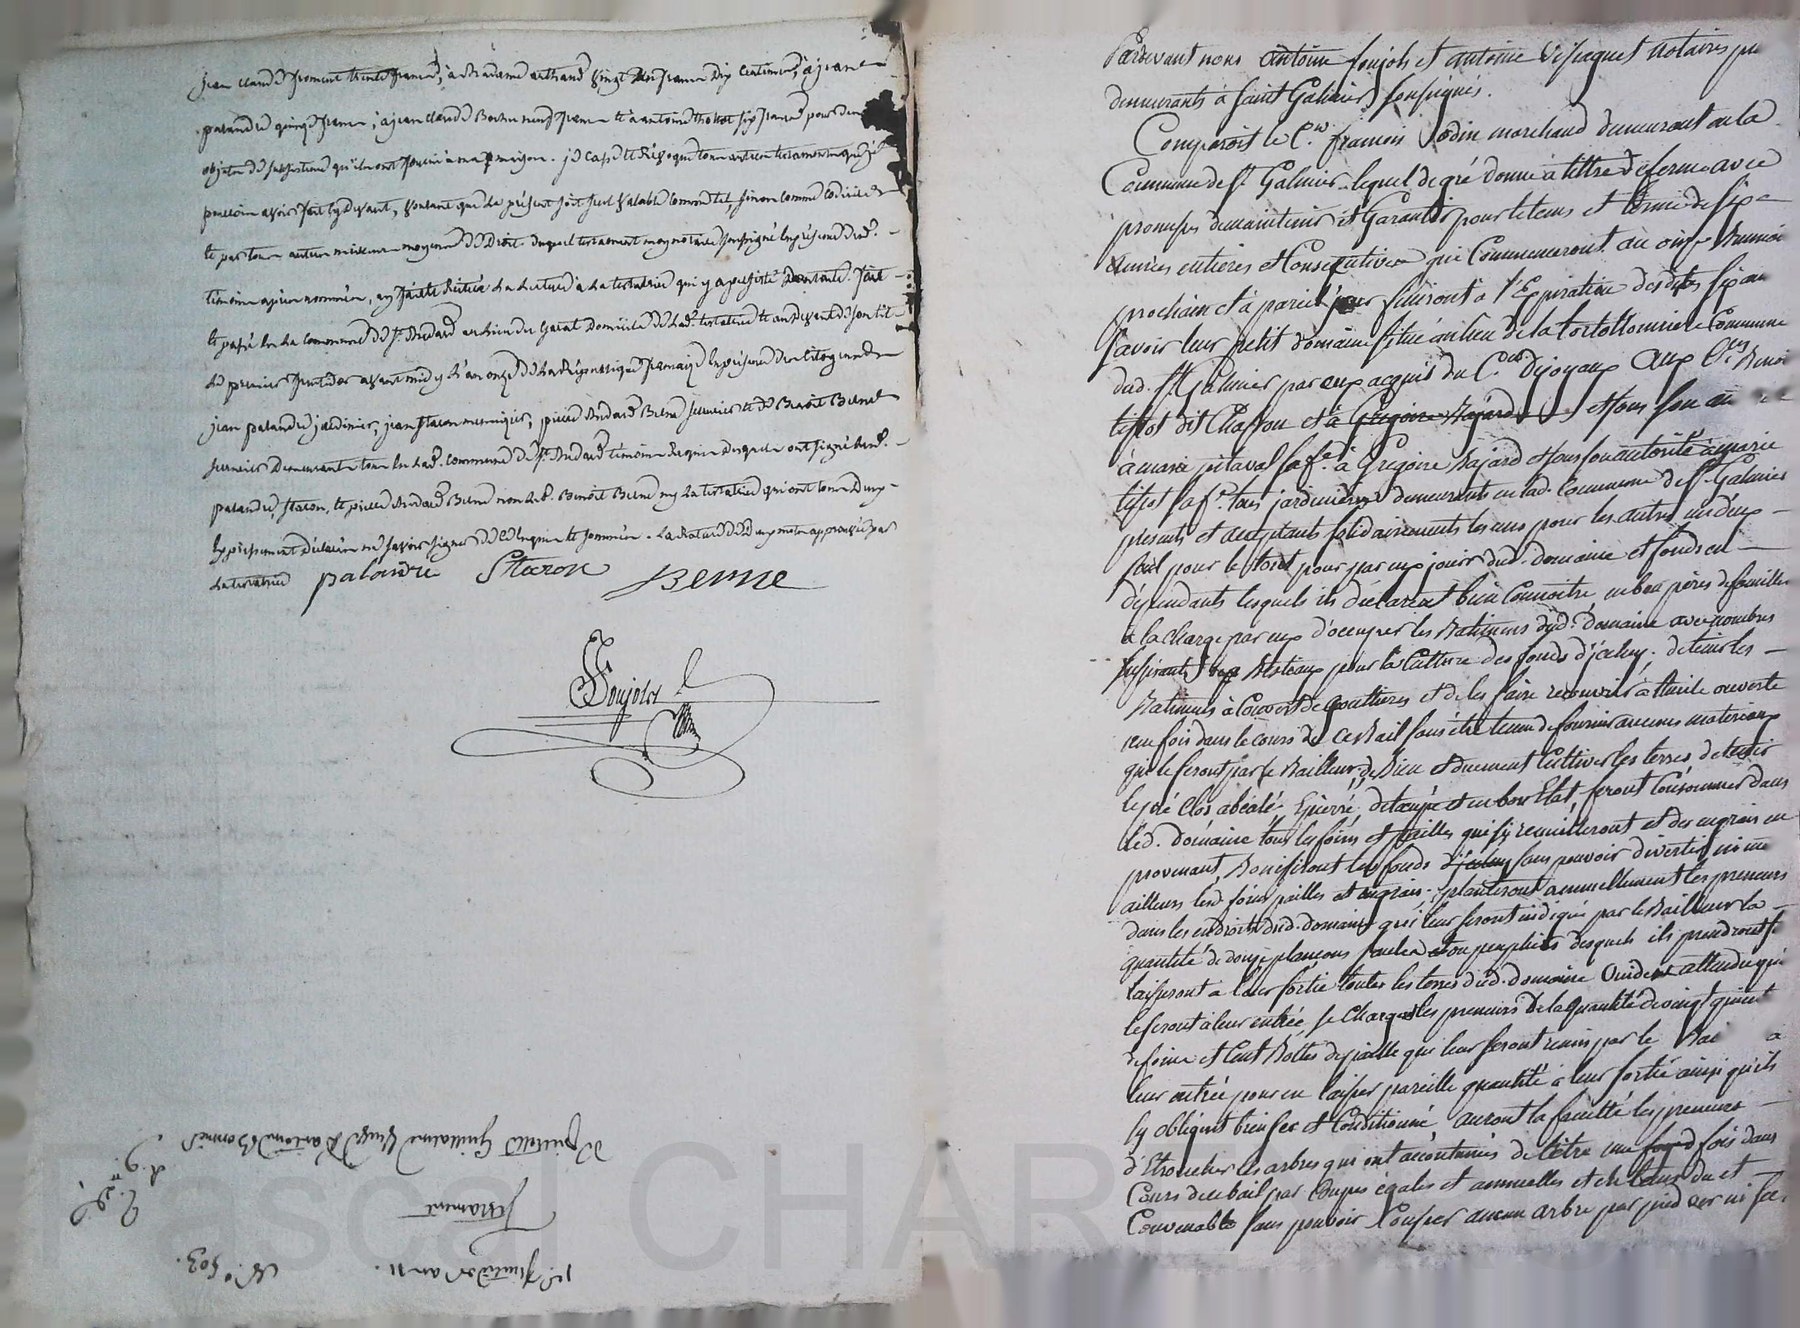 Jean Claude froment trente francs, à Madame arthaud vingt un francs dix Centimes, à jean
palandre quinze francs, à jean claude Berne neuf francs et à antoine Thollot six francs pour
objets de subsistance qu'ils ont fourni à ma maison. je casse et Révoque tous autres testaments que je
puis avoir fait cy devant, voulant que le présent soit seul valable comme tel, sinon comme codicile
et par tous autres meilleurs moyens de Droit. duquel testament moy notaire soussigné En présence des
témoins après nommés, ay fait Lecture à La testatrice qui y a persisté. fait
et passé En La Commune de St. Médard au Lieu du Garat Domicile de Lad. testatrice
Le premier fructidor avant midy L'an onze de La République française En présence des Citoyens
jean palandre jardinier, jean Staron, pierre Médard Berne fermier et de Benoît Berne
fermier Demeurants tous En Lad. Commune de St. Médard témoins Requis Desquels ont signé
palandre, Staron, et pierre Médard Berne non Led. Benoît Berne ny La testatrice qui ont tous Deux
Expressement déclaré ne savoir signer de ce Enquis et sommés. La Rature de Deux mots approuvée par
La testatrice
palandre Staron Berne
Poujols
Pardevant nous antoine poujols et antoine notaires
demeurants à Saint Galmier soussignés.
Comparoit le Cen. françois Odin marchand demeurant en la
Commune de St. Galmier lequel de gré donne à tittre de ferme avec
promesses de maintenir et Garantir pour le tems et terme de six
années entieres et Consecutives qui Commenceront au onze Brumaire
prochain et à pareil jour finiront à l'Expiration desdites six
Savoir leur petit domaine situé au lieu de la Commune
dud. St. Galmier par eux acquis du Cen. Dijoyaux Aux Cens Benoit
tissot dit Chasson et à Gregoire Majard et sous son
à marie pitaval sa fe. à Gregoire Majard et sous son autorité à marie
tissot sa fe. tous jardiniers demeurants en lad. Commune de St. Galmier
presents et acceptants solidairements les uns pour les autres un d'eux
seul pour le tout pour par eux jouir dud. domaine et fonds en
dépendants lesquels ils déclarent bien Connoitre, en bon pères de familles
à la charge par eux d'occuper les Batimens dud. domaine avec nombres
suffisants de Bestiaux pour la Culture des fonds d'iceluy; de tenir les
Batimens à Couvert de Gouttieres et de les faire recouvrir à thuile ouverte
une fois dans le cours de ce Bail sans etre tenu de fournir aucuns materiaux
qui le seront par le Bailleur, de Bien et duement Cultiver les terres de tenir
le pré Clos abéalé Epierré, detaupé et en bon Etat, feront Consommer dans
led. domaine tous les foins et pailles qui s'y recueilleront et des engrais en
provenant, Bonifieront les fonds d'iceluy sans pouvoir divertir ni
ailleurs lesd. foins pailles et engrais; planteront annuellement les preneurs
dans les endroits dud. domaine qui leur seront indiqués par le Bailleur la
quantité de douze plançons saules et ou peupliers desquels ils prendront
laisseront à leur sortie toutes les terres dud. domaine Vuides attendu qui
le seront à leur entrée, se Chargent les preneurs de la quantité de vingt quintaux
de foin et Cent Bottes de paille qui leur seront remis par le Bai à
leur entrée pour en laisser pareille quantité à leur sortie ainsi qu'ils
s'y obligent bien sec et Conditionné auront la faculté les preneurs
d'Etroncher les arbres qui ont acoutumés de l'etre une fois dans
Cours de ce bail par Coupes égales et annuelles et en tems du et
Convenable sans pouvoir Couper aucun arbre par pied ver ni sec
de pierrette Guillaume Veuve d'antoine Bonnet
Testament
1er. fructidor an 11.
N.° 503.